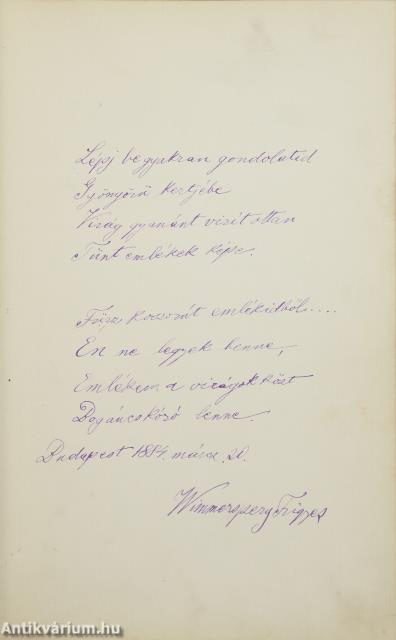 Lépj be gyakran gondolatid
Gyönyörű kertjébe
Virág gyanánt virít ottan
Tünt emlékek képe.
Füzz koszorút emlékitből....
En ne legyek benne,
Emlékem a virágok közt
Bogáncskóró lenne.
Budapest 1884. márcz. 20.
Wimmersperg Frigyes
Antikvárium.hu